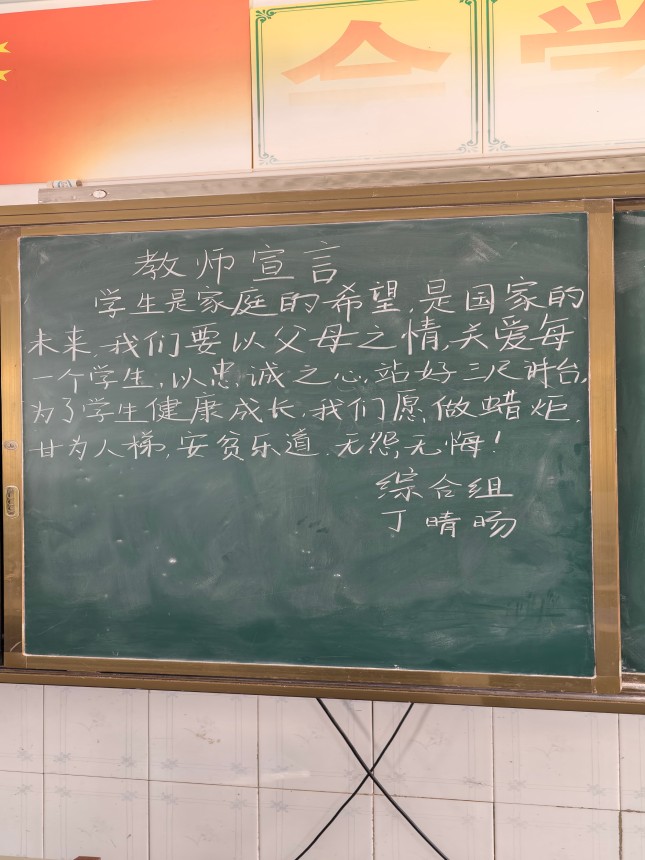 教师宣言
学生是家庭的希望,是国家的
未来,我们要以父母之情,关爱每
一个学生,以忠诚之心,站好三尺讲台,
为了学生健康成长,我们愿做蜡炬,
甘为人梯,安贫乐道,无怨,无悔!
综合组
丁晴旸